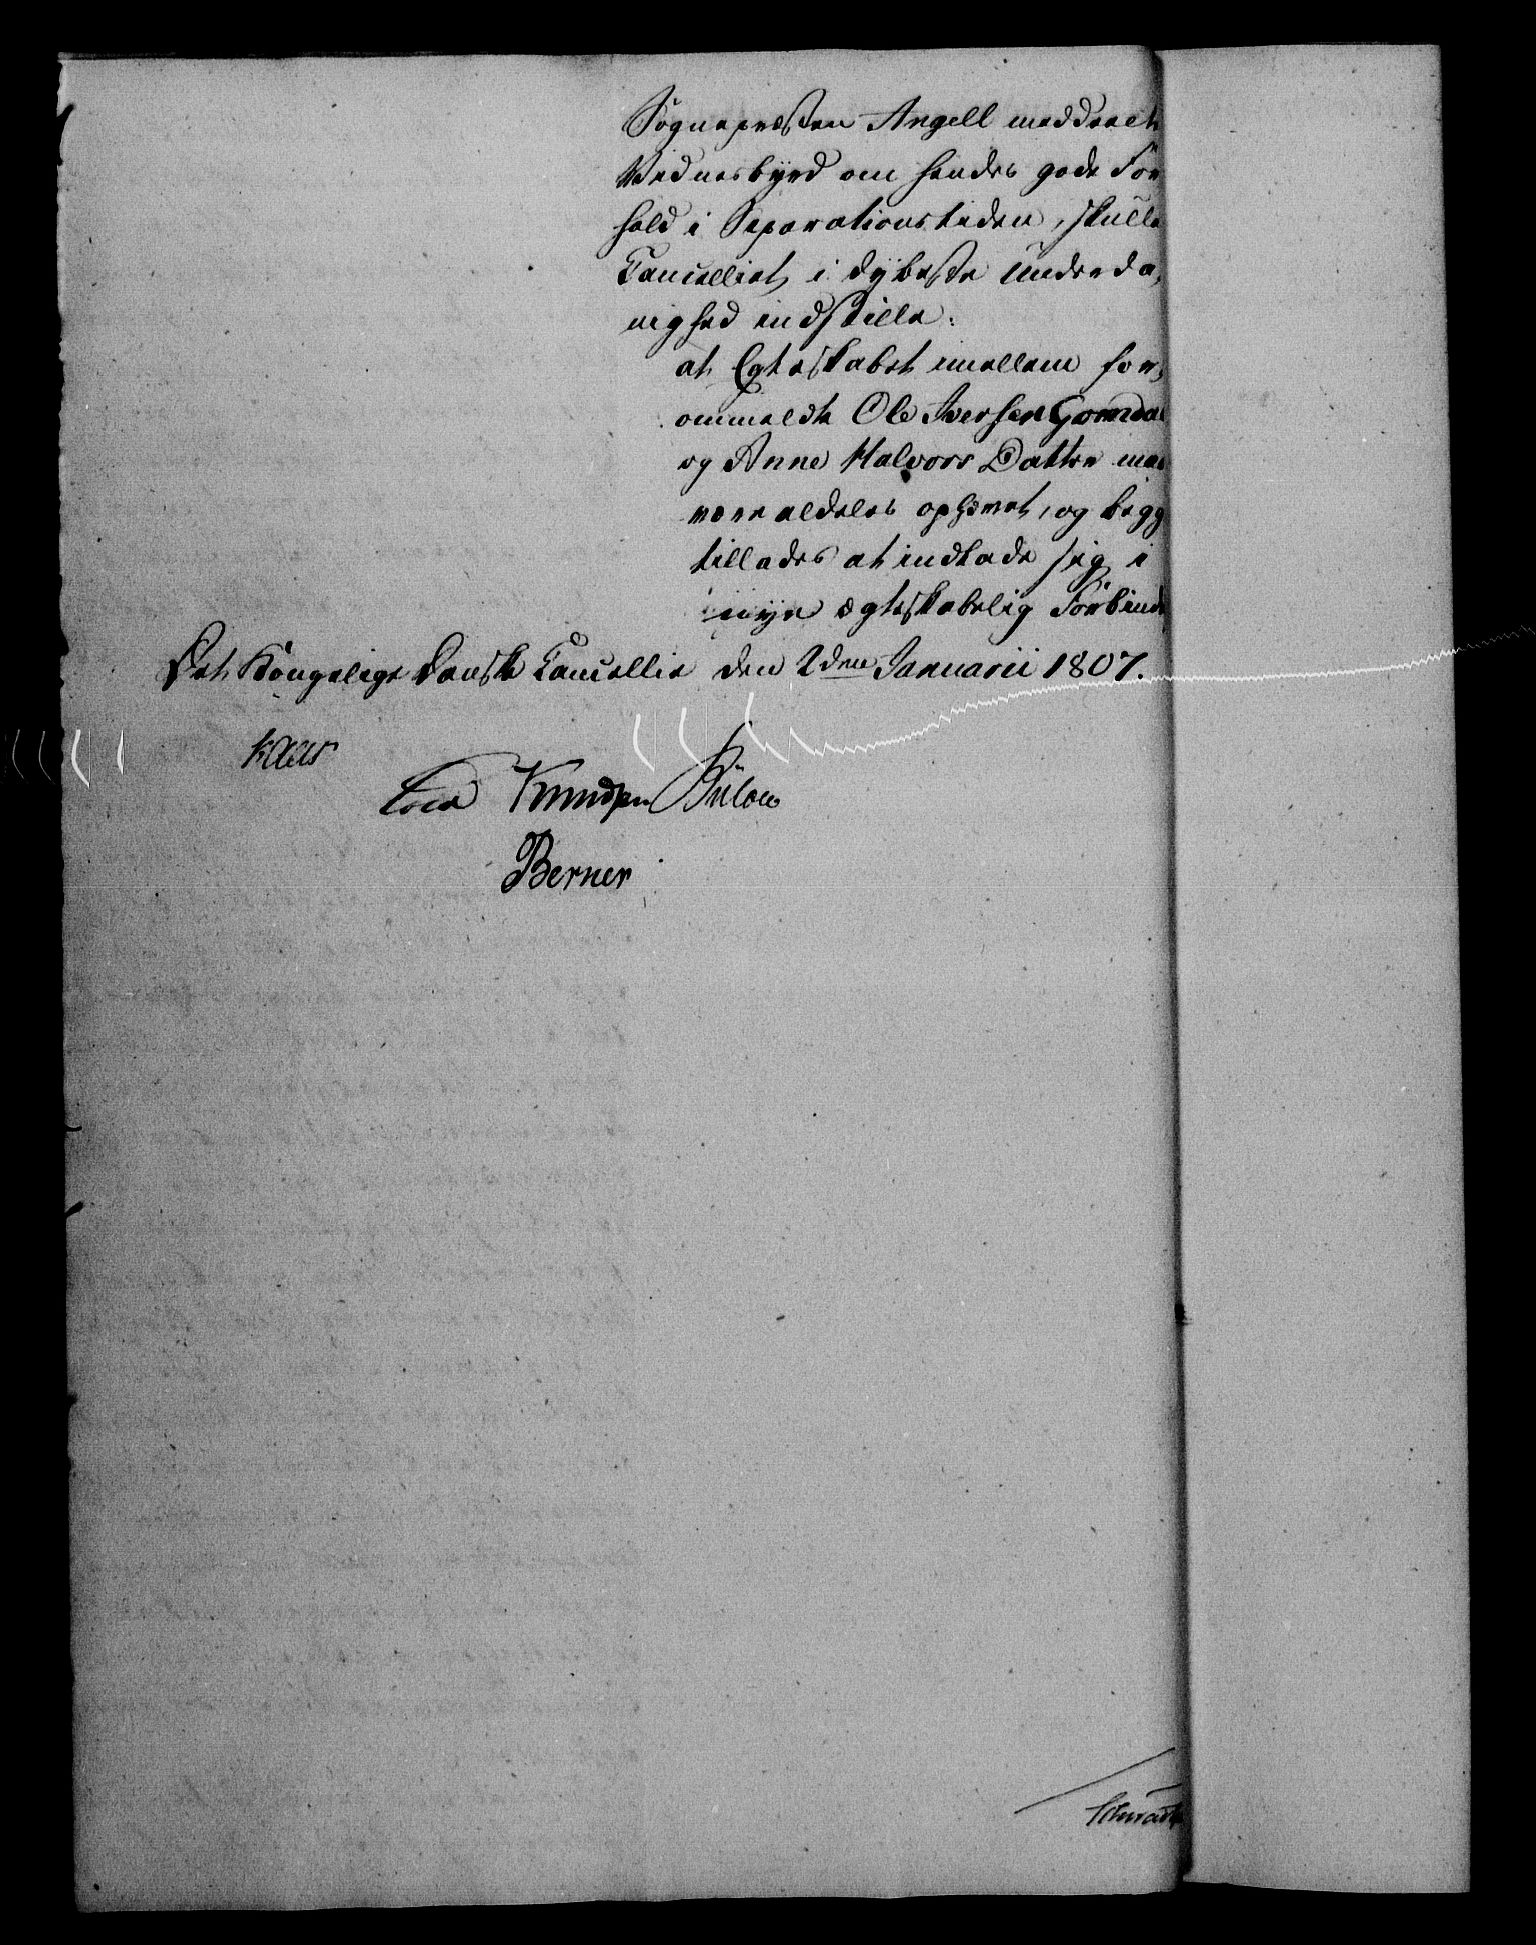 Sognepræsten Angell meddeelt
Vidnesbyrd om hendes gode For
hold i Separationstiden, skulle
Cancelliet i dybeste Underda,
nighed indstille:
at Egteskabet imellem for,
ommeldte Ole Iversen
og Anne Halvors Datter maa
være aldeles ophævet, og begge
tillades at indlade sig i
nye ægteskabelig Forbind
Det Kongelige Danske Cancellie den 2den Januarii 1807.
Kaas
Knudsen Bülow
Berner